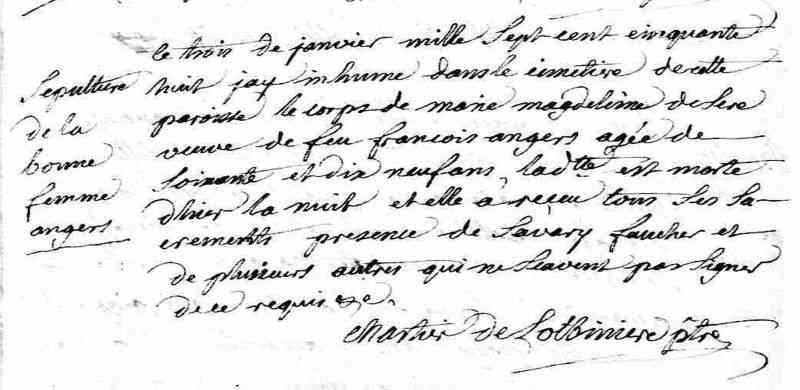 Sepulture
de la
bonne
femme
angers
le trois de janvier mille sept cent cinquante
huit jay inhume dans le cimetiere de cette
paroisse le corps de marie magdeleine de Sere
veuve de feu francois angers agée de
soixante et dix neuf ans ladtte est morte
dhier la nuit et elle à reçeu tous ses sa-
crements presence de Savary faucher et
de plusieurs autres qui ne scavent pas signer
de ce requis &c.
Chartier de Lotbiniere ptre